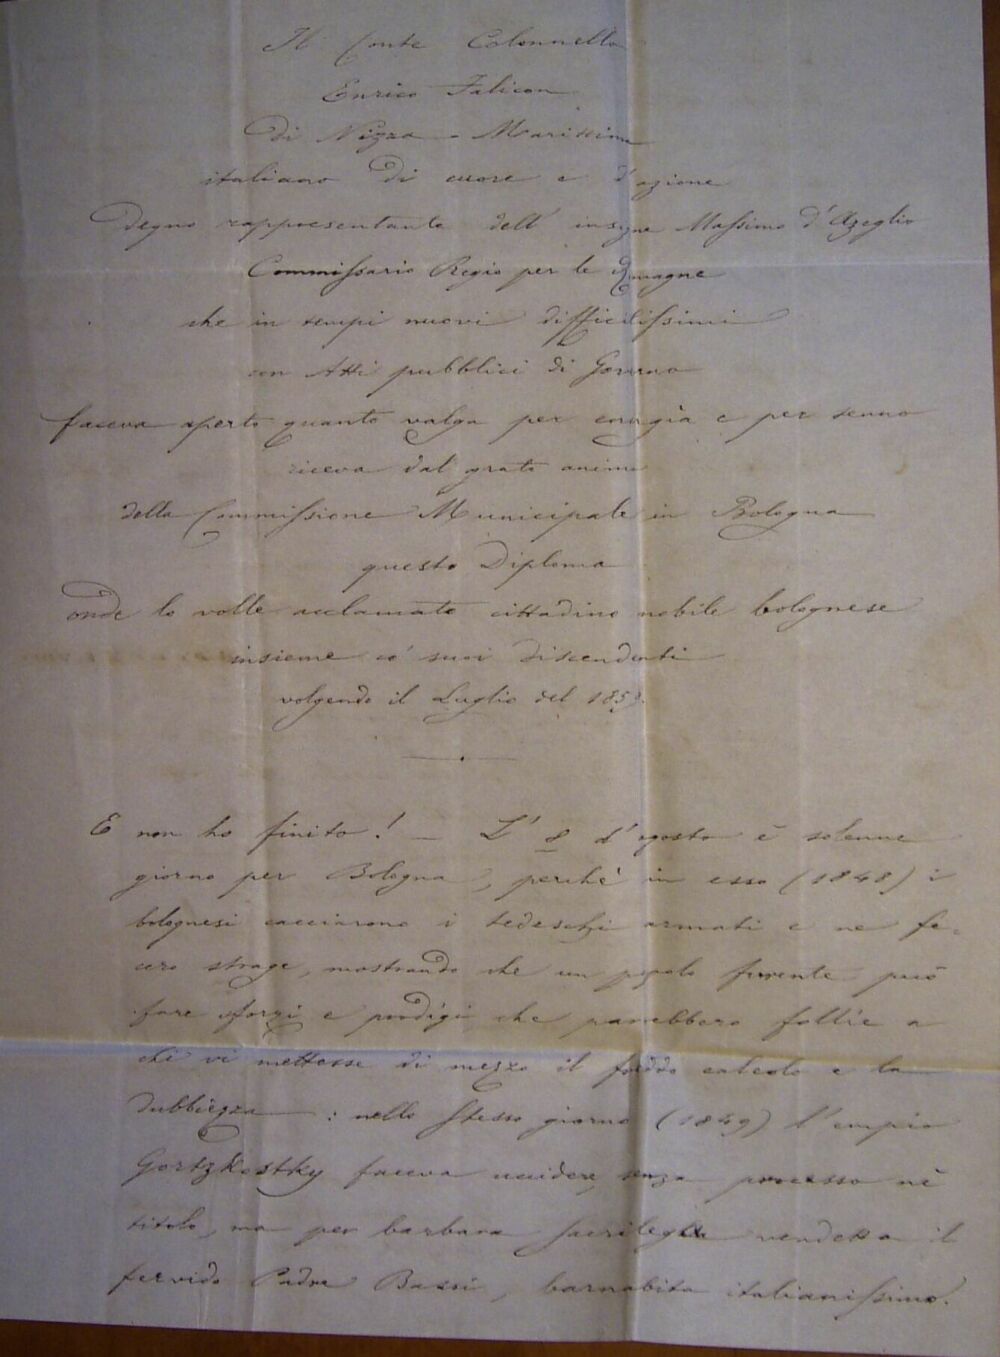 Il Conte Colonnello
Enrico Falicon
di Nizza - Marittima
italiano di cuore e d'azione
degno rappresentante dell' insigne Massimo d'Azeglio
Commissario Regio per le Romagne
che in tempi nuovi difficilissimi
con Atti pubblici di Governo
faceva aperto quanto valga per energia e per senno
riceva dal grato animo
della Commissione Municipale in Bologna
questo Diploma
onde lo volle acclamato cittadino nobile bolognese
insieme co' suoi discendenti
volgendo il Luglio del 1859.
E non ho finito! — L' 8 d'agosto è solenne
giorno per Bologna, perchè in esso (1848) i
bolognesi cacciarono i tedeschi armati e ne fe-
cero strage, mostrando che un popolo furente può
fare sforzi e prodigi che parebbero follie a
chi vi mettesse di mezzo il freddo calcolo e la
dubbiezza: nello stesso giorno (1849) l'empio
Gortzkostky faceva uccidere, senza processo nè
titolo, ma per barbara sacrilega vendetta il
fervido Padre Bassi, barnabita italianissimo.